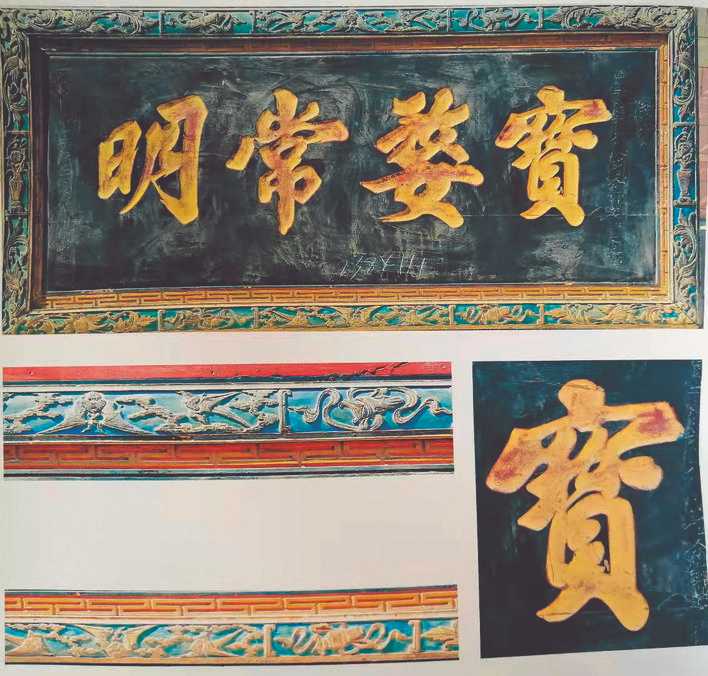 寶婺常明
寶